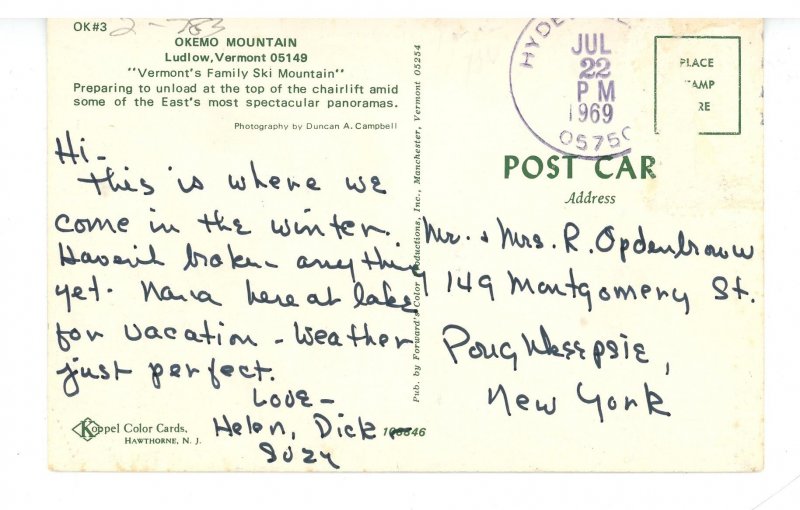 OK#3 2-783
OKEMO MOUNTAIN
Ludlow, Vermont 05149
"Vermont's Family Ski Mountain"
Preparing to unload at the top of the chairlift amid
some of the East's most spectacular panoramas.
Photography by Duncan A. Campbell
Hi-
this is where we
come in the winter.
Haven't broken anything
yet. here at lake
for vacation - Weather
just perfect.
Love-
Helen, Dick
Suzy
Koppel Color Cards.
HAWTHORNE, N. J.
Pub. by Forward's Color Productions, Inc., Manchester, Vermont 05254
HYDE
JUL
22
PM
1969
05750
PLACE
AMP
RE
POST CAR
Address
Mr. & Mrs. R. Opdenbrouw
149 Montgomery St.
Poughkeepsie,
New York